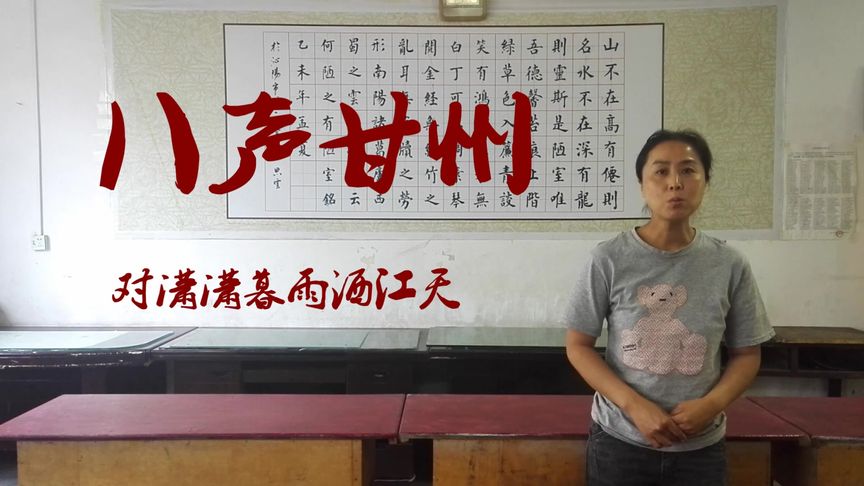 八声甘州
对潇潇暮雨洒江天
山不在高有僊則
名水不在深有龍
則靈斯是陋室唯
吾德馨苔痕上階
綠草色入簾青談
笑有鴻無
白丁可琴
閱金經竹之
亂耳牘之勞
形南陽諸葛廬西
蜀之雲云
何陋之有陋室銘
乙未年孟夏
於沁陽市